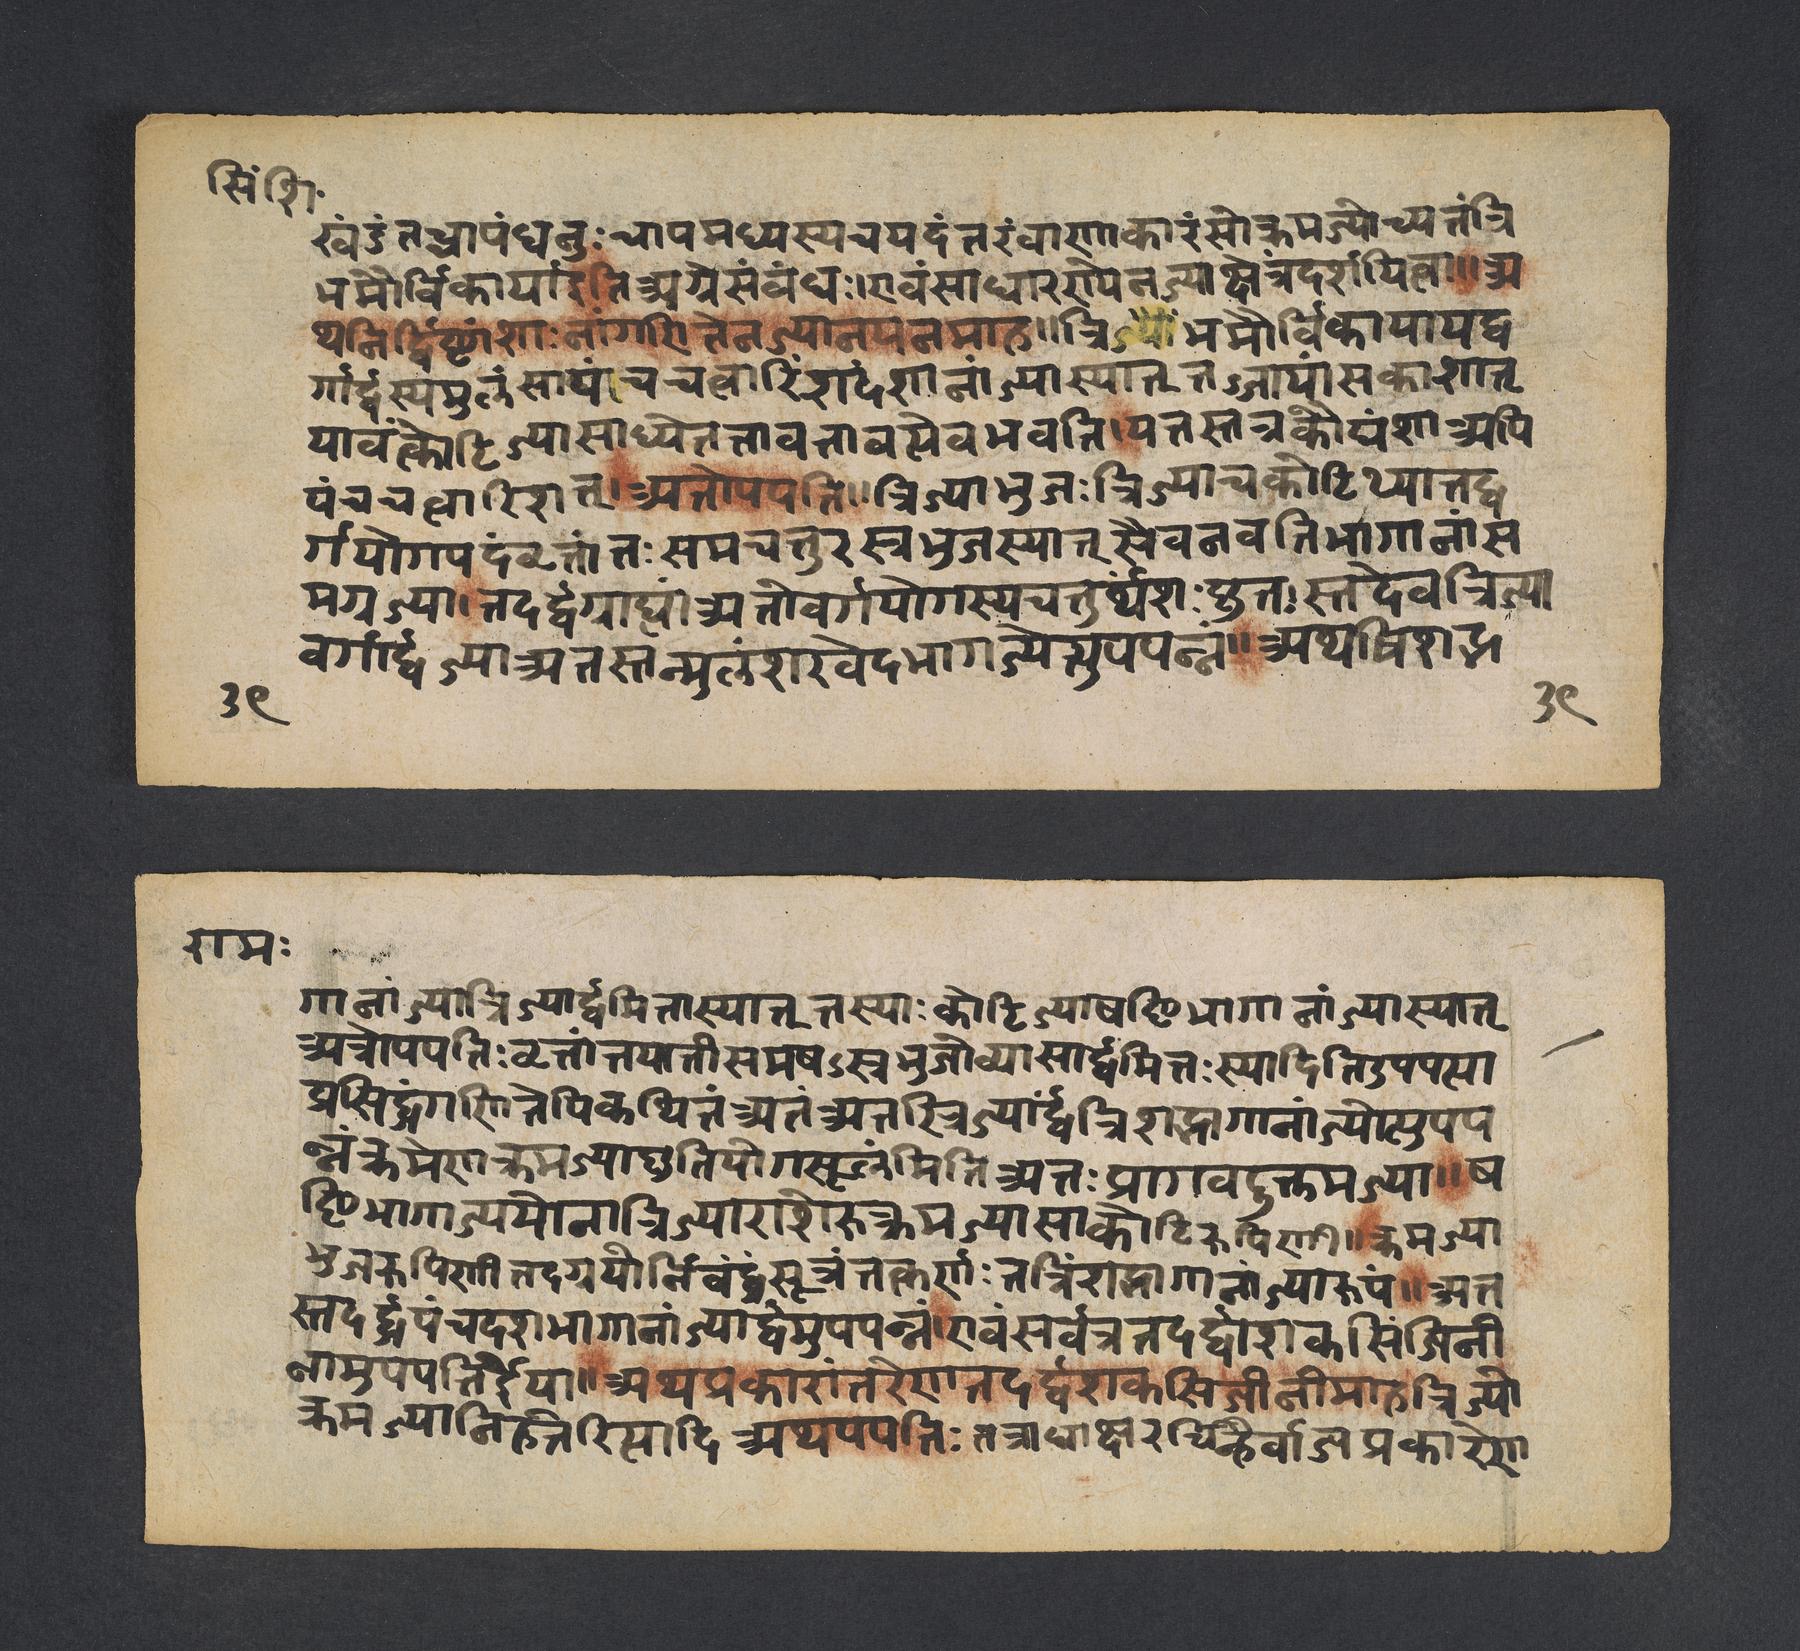 सिं शि॰
खंडं तच्चापं धनुः चापमध्यस्य च यदंतरं वाणाकारं सोत्क्रमज्योच्यतं त्रि
भमौर्विकायां इति अग्रे संवंधः ।। एवं साधारणेन ज्याक्षेत्रं दर्शयित्वा ।। अ
थ निर्द्दिष्टांशाः नां गणितेन ज्यानयनमाह ।। त्रिज्यां भमौर्विकाया यद्व
र्गार्द्धस्य मुलं सा पंच चत्वारिंशदंशानां ज्या स्यात् तज्ज्यायां सकाशात्
यावत्कोटिज्या साध्यते तावत्तावत्येव भवति । यतस्तत्र कोट्यंशा अपि
पंचचत्वारिशत् । अतोपपति ।। त्रिज्या भुजः त्रिज्या च कोटिथ्यातद्व
र्गयोगपदं वृत्तांतः समचतुरस्त्रभुजस्यात् सैव नवतिभागानां स
मग्रज्या । तदर्द्धं ग्राघ्यां अतो वर्गयोगस्य चतुर्थंशः घ्तुतः स्तदेव त्रिज्या
वर्गार्द्धज्या अतस्तन्मुलं शरवेदभागज्येत्युपपन्नं ।। अथ त्रिंशद्भ
३९
३९
रामः
गानां ज्या त्रिज्यार्द्धमिता स्यात् तस्याः कोटिज्या षष्टिभागानां ज्या स्यात्
अत्रोपपतिः वृत्तांतयाती समषडस्त्रभुजो व्यासार्द्धमितः स्यादिति उपपत्या
प्रसिद्धं गणितेपि कथितं अतं अतस्त्रिज्यार्द्धं त्रिशद्भागानां ज्योत्युपप
न्नं क्रमेणोत्क्रमज्याघ्रुतियोगमूलमिति अतः प्रागवदुत्क्रमज्या ।। ष
ष्टिभागाज्ययोना त्रिज्याराशेरुत्क्रमज्या सा कोटिरूपिणी ।। क्रमज्या
भुजरूपिणी तदग्रयोर्निवंद्धं सूत्रं तत्कर्णः तत्रिंशद्भागानां ज्यारूपं ।। अत
स्तदर्द्धं पंचदशभागानां ज्यार्द्धमुपपन्नं । एवं सर्वत्र तदर्द्धांशकसिंजिनी
नामुपपतिर्ज्ञेया ।। अथ प्रकारांतरेण तदर्द्धंशकसिंजीनीमाह त्रिज्यो
त्क्रमज्यानिहतेरित्यादि अथपपतिः तत्राद्याक्षरचिन्हैर्वीजप्रकारेण